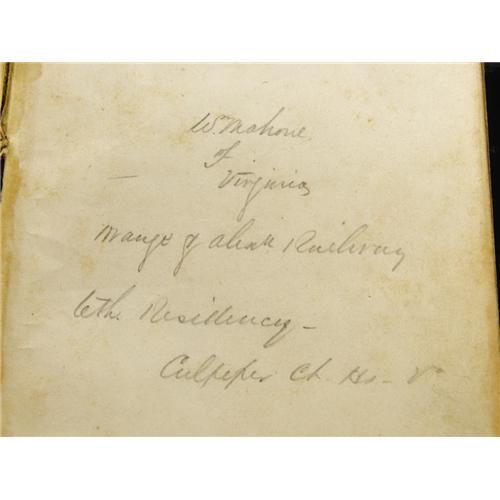 Wm Mahone
of
Virginia
Orange & Alexa Railway
6th. Residency -
Culpeper Ct. Ho - Va